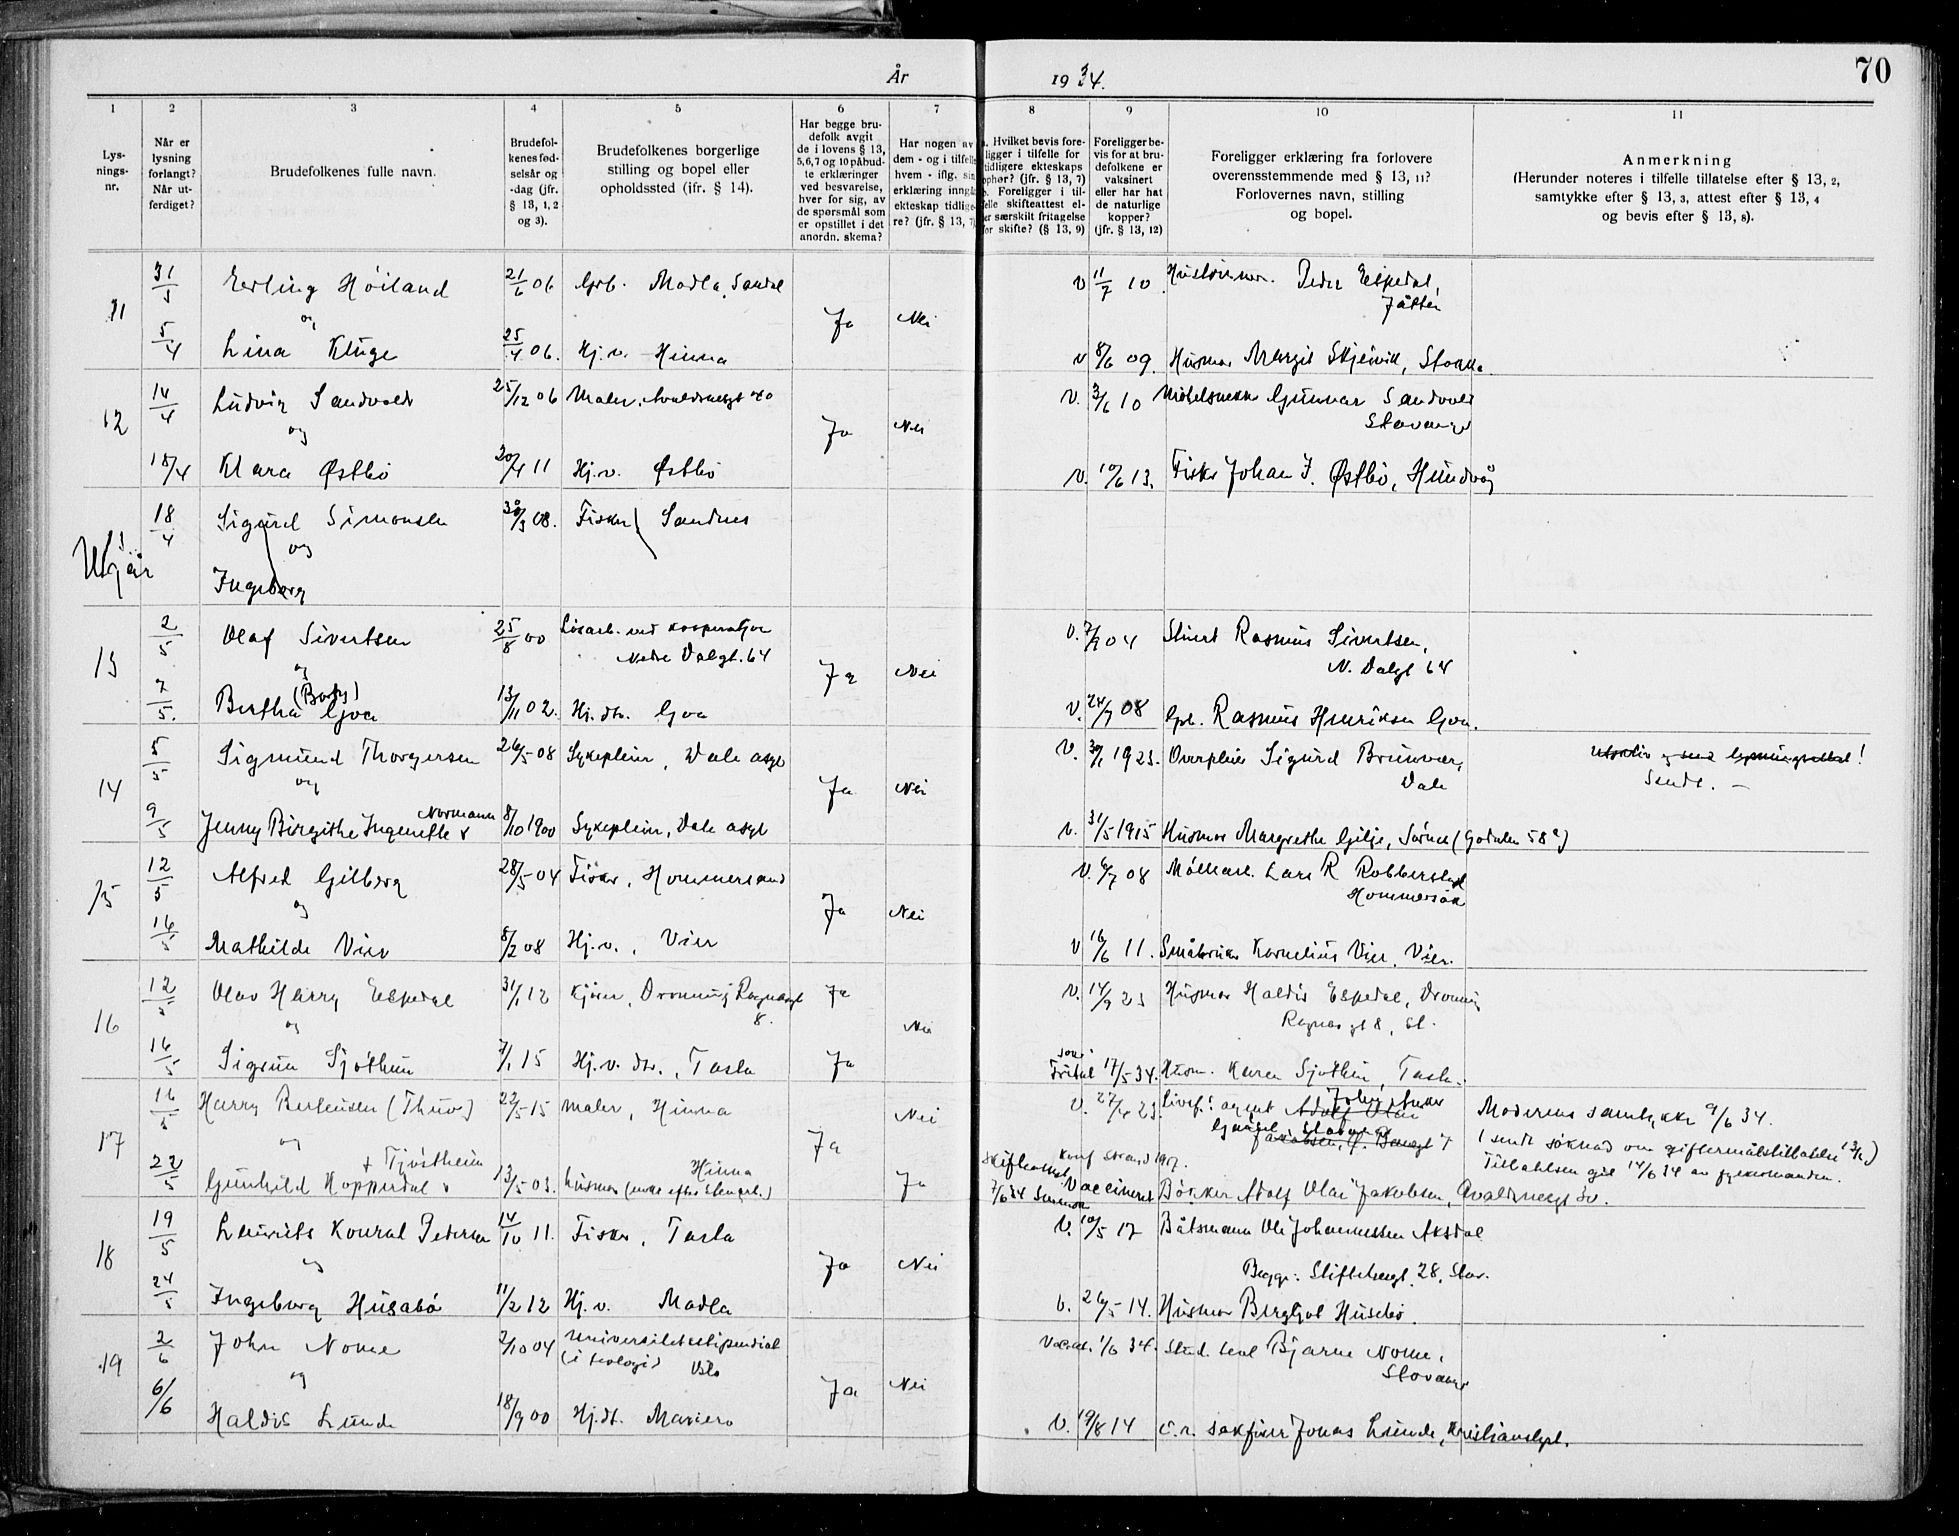 År 1934.
70
1 2 3 4 5 6 7 8 9 10 11
Lysningsnr.
Når er lysning forlangt? Når utferdiget?
Brudefolkenes fulle navn.
Brudefolkenes fødselsår og -dag (jfr. § 13, 1, 2 og 3).
Brudefolkenes borgerlige stilling og bopel eller opholdssted (ifr. § 14).
Har begge brudefolk avgitt de i lovens § 13, 5, 6, 7 og 10 påbudte erklæringer ved besvarelse, hver for sig, av de spørsmål som er opstillet i det anordn. skema?
Har nogen av dem - og i tilfelle hvem - iflg. sin erklæring inngått ekteskap tidligere? (jfr. § 13, 7)
a. Hvilket bevis foreligger i tilfelle for tidligere ekteskaps ophør? (jfr. § 13, 7) b. Foreligger i tilfelle skifteattest eller særskilt fritagelse for skifte? (§ 13, 9)
Foreligger bevis for at brudefolkene er vaksinert eller har hat de naturlige kopper? (jfr. § 13, 12)
Foreligger erklæring fra forlovere overensstemmende med § 13, 11? Forlovernes navn, stilling og bopel.
Anmerkning
(Herunder noteres i tilfelle tillatelse efter § 13, 2, samtykke efter § 13, 3, attest efter § 13, 4 og bevis efter § 13, 8).
11 31/3 Erling Höiland 21/6 06 Grb. Madla, v 11/7 10 Peder Espedal,
Jåtten
og Ja Nei
5/4 Lina Kluge 25/4 06. Hj.v. Hinna v 8/6 09. Husmor Margit Skjeivik, Stokka.
12 14/4 Ludvig Sandvold 25/12 06 Maler, 40 V. 3/6 10 Gunnar Sandvold
Stavanger
og Ja Nei
18/4 Klara Østbö 20/4 11 Hj.v. Østbö V. 10/6 13. Fisker Johan J. Østbö, Hundvåg
13 18/4 Sigurd Simonsen 30/3 08. Fisker Sandnes
Utgår og
Ingeborg
13 2/5 Olaf Sivertsen 25/8 00 V. 7/7 04 Rasmus Sivertsen,
Nedre Dalgt. 64 N. Dalgt 64
og Ja Nei
7/5. Bertha Goa 13/11 02. Hj.dtr. Goa V. 24/7 08 Gbr. Rasmus Henriksen Goa.
14 5/5 Sigmund Thorgersen 26/5 08 Sykepleier, Dale asyl V. 30/1 1923. Overpleier Sigurd Brunvær,
Dale
og Ja Nei Sendt. —
9/5 Jenny Birgithe Ingemette Normann 8/10 1900 Sykepleier, Dale asyl v. 31/5 1915 Husmor Margrethe Gilje, (Godalen 58a)
15 12/5 Alfred Gilberg 28/5 04 Fisker, Hommersand V. 6/7 08 Lars R Robberstad
Hommersåk
og Ja Nei
16/5 Mathilde Vier 8/2 08 Hj.v., Vier V 16/6 11. Småbruker Kornelius Vier, Vier.
16 12/5 Olav Harry Espedal 31/1 12 Kjører, Dronning Ragnasgt 8. Ja V. 14/9 23 Husmor Haldis Espedal, Dronning
Ragnasgt 8, St.
og Nei
16/5 Sigrun Sjöthun 7/1 15 Hj.v. dtr., Tasta Ja 17/5 34. Husm. Karen Sjöthun, Tasta.
17 16/5 Harry Berentsen (Thuv) 22/5 15 maler, Hinna Nei V. 27/4 23. Livsf. agent Modernes samtykke 9/6 34.
og Ja (sendt söknad om giftermålstillatelse 13/6)
22/5 Gunhild Hopperdal + Tjöstheim 13/5 03. husmor Hinna Ja Tillatelsen git 14/6 34 av fylkesmannen.
Skifteattest 7/6 34 Vaccineret Bödker Adolf Olai Jakobsen,
18 19/5 Laurits Konrad Pedersen 14/10 11. Fisker, Tasta V. 10/5 17 Båtsmann Ole Johannessen Aksdal
og Ja Nei Begge: 28, Stav.
24/5 Ingeborg Husabö 11/2 12 Hj.v. Madla v. 26/5 14. Husmor Bergljot Husebö.
19 2/6 John Nome 2/10 04 Universitetsstipendiat (i teologi) Oslo 1/6 34. Stud. teol Bjarne Nome,
Stavanger
og Ja Nei
6/6 Haldis Lunde 18/9 00 Hj.dt. Mariero V. 19/8 14 o.r. sakfører Jonas Lunde, Kristianslyst.